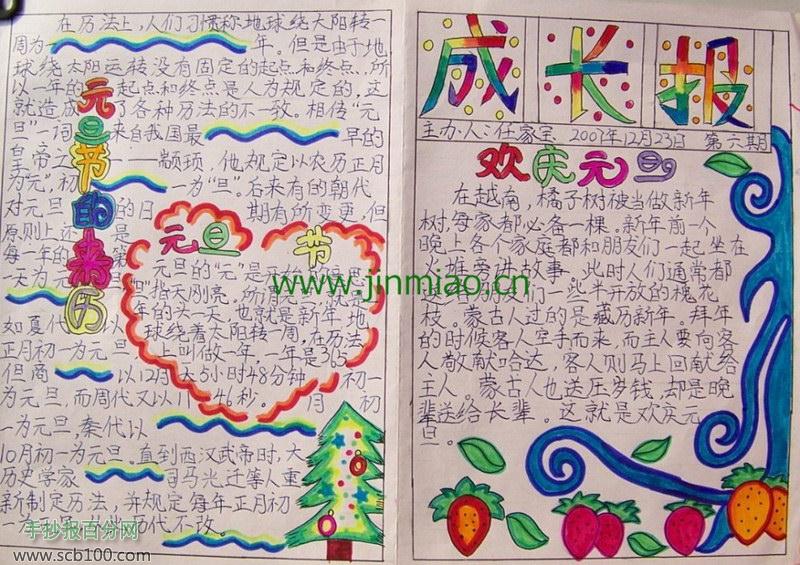 在历法上，人们习惯称地球绕太阳转一
周为 年。但是由于地
球绕太阳运转没有固定的起点和终点，所
以一年的 起点和终点是人为规定的，这
就造成 了各种历法的不一致。相传“元
旦”一词 来自我国最 早的
皇帝 ——颛顼，他规定以农历正月
为“元”，初 一为“旦”。后来有的朝代
对元旦 的日 期有所变更，但
原则上还 是
每一年的 第
天为元
如夏代 以
正月初一为元旦，
但商 以12月 初一
为元旦，而周代又以11 月 初
一为元旦，秦代以
10月初一为元旦。直到西汉武帝时，大
历史学家 司马 迁等人重
新制定历法，并规定每年正月初
一为元旦， 历代不改。
元旦节的来历
元旦 节
元旦的“元”是
“旦”指天刚亮。所
年的头一天，也就是新年。地
球绕着太阳转一周，在历法
上叫做一年，一年是365
天5小时48分钟
46秒。
成长报
主办人：任家宝 2007年12月23日 第六期
欢庆元旦
在越南，橘子树被当做新年
树，每家都必备一棵。新年前一个
晚上各个家庭都和朋友们一起坐在
火堆旁讲故事。此时人们通常都
们一些半开放的桃花
枝。蒙古人过的是藏历新年。拜年
的时候客人空手而来，而主人要向客
人敬献哈达，客人则马上回献给
主人。蒙古人也送压岁钱，却是晚
辈送给长辈。这就是欢庆元
旦。
www.jinmiao.cn
手抄报百分网
www.scb100.com